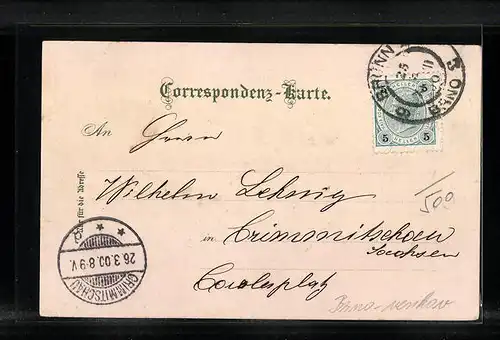 Correspondenz-Karte.
BRÜNN 3 BRNO
25
5 HELLER 5
An Herrn
Nur für die Adresse
Wilhelm
in Crimmitschau
Sachsen
Carolaplatz
CRIMMITSCHAU
26.3.00.8-9V.
1/500
Brno-venkov